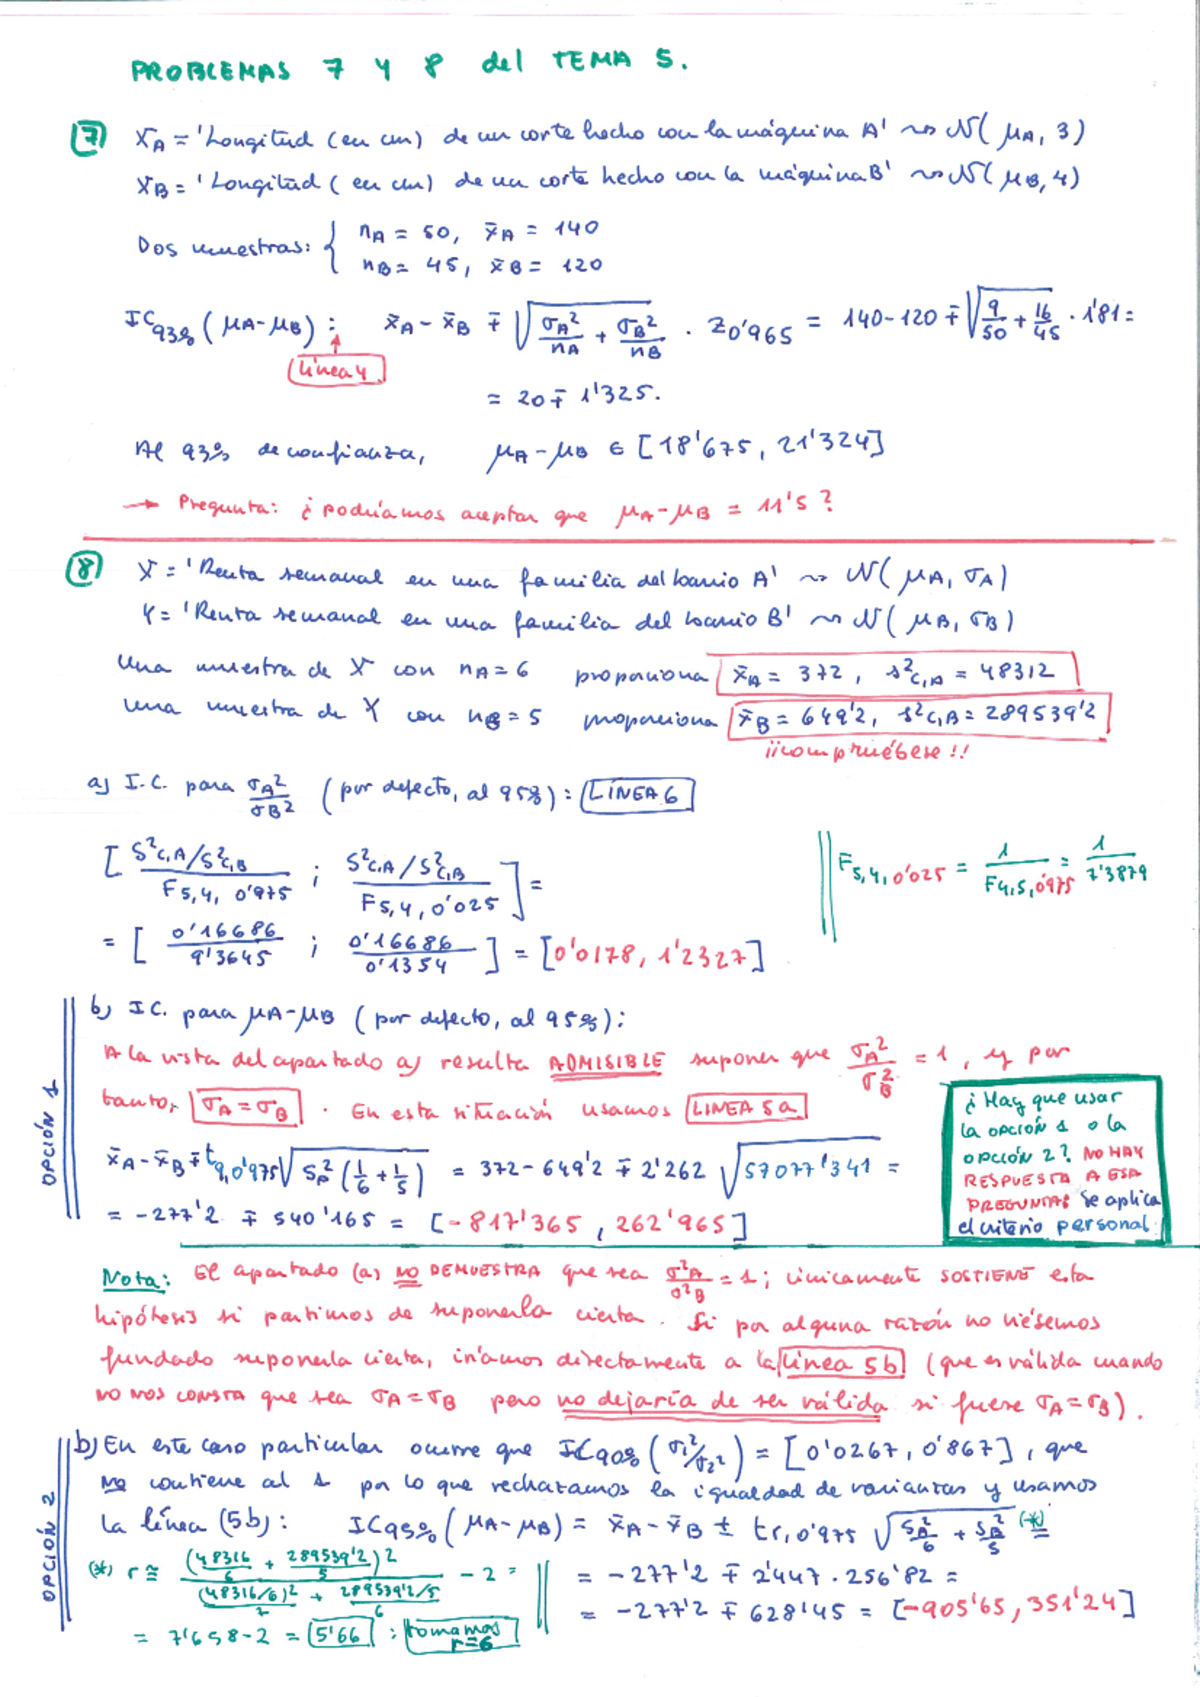 PROBLEMAS 7 Y 8 del TEMA 5.
7 X_A = 'Longitud (en cm) de un corte hecho con la máquina A' ~> N(μ_A, 3)
X_B = 'Longitud (en cm) de un corte hecho con la máquina B' ~> N(μ_B, 4)
Dos muestras: { n_A = 50, x̄_A = 140
n_B = 45, x̄_B = 120
IC_93% (μ_A-μ_B) : x̄_A - x̄_B ∓ √(σ_A²/n_A + σ_B²/n_B) · Z_0'965 = 140-120 ∓ √(9/50 + 16/45) · 1'81 =
Línea 4
= 20 ∓ 1'325.
Al 93% de confianza, μ_A-μ_B ∈ [18'675, 21'324]
→ Pregunta: ¿podríamos aceptar que μ_A-μ_B = 11'5?
8 X = 'Renta semanal en una familia del barrio A' ~> N(μ_A, σ_A)
Y = 'Renta semanal en una familia del barrio B' ~> N(μ_B, σ_B)
Una muestra de X con n_A = 6 proporciona x̄_A = 372, s²_C,A = 48312
Una muestra de Y con n_B = 5 proporciona x̄_B = 649'2, s²_C,B = 289539'2
¡¡compruébese!!
a) I.C. para σ_A²/σ_B² (por defecto, al 95%): LÍNEA 6
[ (S²_C,A/S²_C,B)/F_5,4,0'975 ; (S²_C,A/S²_C,B)/F_5,4,0'025 ] =
F_5,4,0'025 = 1/F_4,5,0'975 = 1/7'3879
= [ 0'16686/9'3645 ; 0'16686/0'1354 ] = [0'0178, 1'2327]
OPCIÓN 1
b) IC. para μ_A-μ_B (por defecto, al 95%):
A la vista del apartado a) resulta ADMISIBLE suponer que σ_A²/σ_B² = 1, y por
tanto, σ_A = σ_B. En esta situación usamos LINEA 5a
x̄_A - x̄_B ∓ t_9,0'975 √(S_p² (1/6 + 1/5)) = 372-649'2 ∓ 2'262 √57077'341 =
= -277'2 ∓ 540'165 = [-817'365, 262'965]
¿Hay que usar
la OPCIÓN 1 o la
OPCIÓN 2? NO HAY
RESPUESTA A ESA
PREGUNTA: Se aplica
el criterio personal.
Nota: El apartado (a) NO DEMUESTRA que sea σ²_A/σ²_B = 1; únicamente SOSTIENE esta
hipótesis si partimos de suponerla cierta. Si por alguna razón no viésemos
fundado suponerla cierta, iríamos directamente a la línea 5b (que es válida cuando
NO NOS CONSTA que sea σ_A = σ_B pero no dejaría de ser válida si fuese σ_A = σ_B).
OPCIÓN 2
b) En este caso particular ocurre que IC_90% (σ_1²/σ_2²) = [0'0267, 0'867], que
NO contiene al 1 por lo que rechazamos la igualdad de varianzas y usamos
la línea (5b): IC_95% (μ_A-μ_B) = x̄_A - x̄_B ± t_r,0'975 √(S_A²/6 + S_B²/5) (*)=
(*) r ≅ (48316/6 + 289539'2/5)² / ((48316/6)²/7 + 289539'2/5/6) - 2 =
= -277'2 ∓ 2'447 · 256'82 =
= -277'2 ∓ 628'45 = [-905'65, 351'24]
= 7'658-2 = 5'66 : tomamos r=6